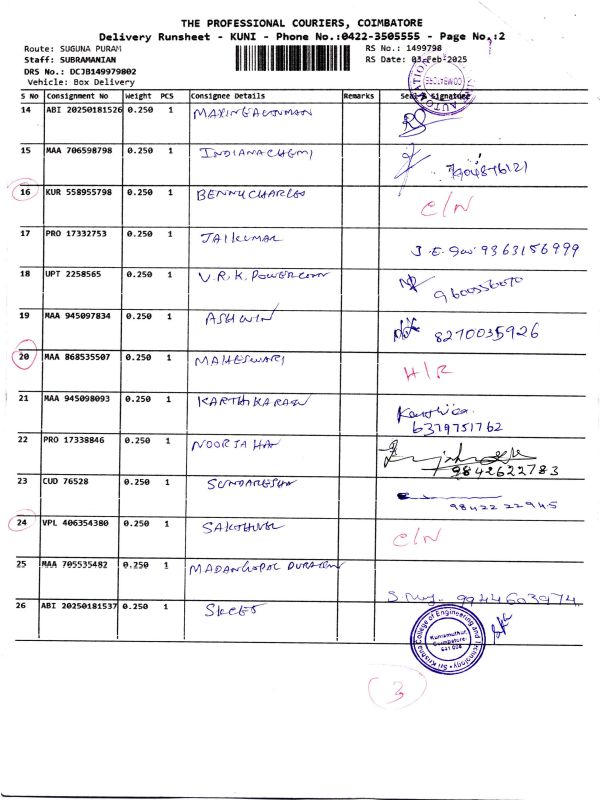 THE PROFESSIONAL COURIERS, COIMBATORE
Delivery Runsheet - KUNI - Phone No.:0422-3505555 - Page No.:2
Route: SUGUNA PURAM RS No.: 1499798
Staff: SUBRAMANIAN RS Date: 03-Feb-2025
DRS No.: DCJB149979802
Vehicle: Box Delivery
S No Consignment No Weight PCS Consignee Details Remarks Seal & Signature
14 ABI 20250181526 0.250 1
15 MAA 706598798 0.250 1 INDIANA CHEMI
16 KUR 558955798 0.250 1 BENNY CHARLES C/N
17 PRO 17332753 0.250 1 JAIKUMAR 9363156999
18 UPT 2258565 0.250 1 V.R.K. POWERCON
19 MAA 945097834 0.250 1 ASHWIN 8270035926
20 MAA 868535507 0.250 1 MAHESWARI H/R
21 MAA 945098093 0.250 1 KARTHIKARAN Karthica
6379751762
22 PRO 17338846 0.250 1 NOORJAHAN
9842622783
23 CUD 76528 0.250 1 SUNDARESAN
98422 22945
24 VPL 406354380 0.250 1 SAKTHIVEL C/N
25 MAA 705535482 0.250 1 MADANGOPAL
9944603974
26 ABI 20250181537 0.250 1 SKCET
Sri Krishna College of Engineering and Technology
Kuniamuthur,
Coimbatore-
641 008
3